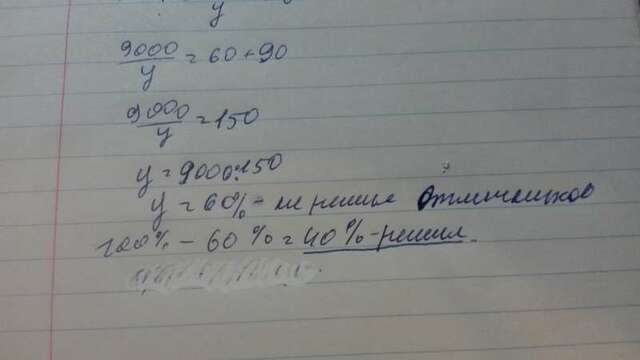 y
9000/y = 60+90
9000/y = 150
y = 9000:150
y = 60% - не решил отличников
100% - 60% = 40% - решил